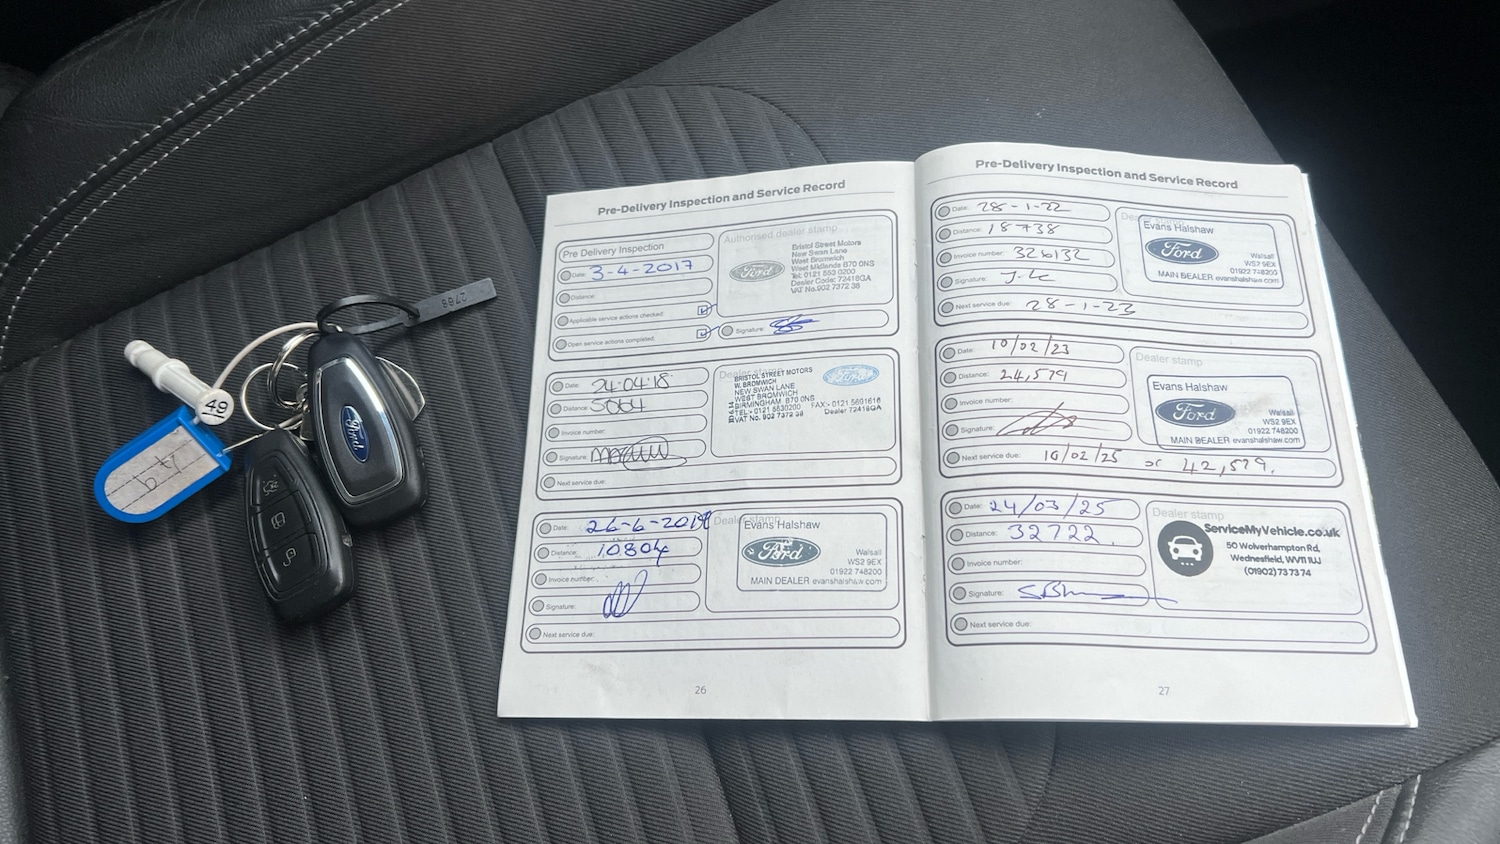 2788
49
Ford
Pre-Delivery Inspection and Service Record
Pre Delivery Inspection
Date: 3-4-2017
Distance:
Applicable service actions checked:
Open service actions completed:
Authorised dealer stamp
Ford
Bristol Street Motors
New Swan Lane
West Bromwich
West Midlands B70 0NS
Tel: 0121 553 0200
Dealer Code: 72418GA
VAT No.902 7372 38
Signature:
Date: 24.04.18
Distance: 5064
Invoice number:
Signature:
Next service due:
Dealer stamp
BRISTOL STREET MOTORS
W. BROMWICH
NEW SWAN LANE
WEST BROMWICH
BIRMINGHAM B70 0NS
TEL:- 0121 5530200 FAX:- 0121 5601616
VAT No. 902 7372 38 Dealer 72418GA
Ford
Date: 26-6-2019
Distance: 10804
Invoice number:
Signature:
Next service due:
Dealer stamp
Evans Halshaw
Ford
Walsall
WS2 9EX
01922 748200
MAIN DEALER evanshalshaw.com
26
Pre-Delivery Inspection and Service Record
Date: 28-1-22
Distance: 18738
Invoice number: 326132
Signature:
Next service due: 28-1-23
Dealer stamp
Evans Halshaw
Ford
Walsall
WS2 9EX
01922 748200
MAIN DEALER evanshalshaw.com
Date: 10/02/23
Distance: 24,579
Invoice number:
Signature:
Next service due: 10/02/25 or 42,579.
Dealer stamp
Evans Halshaw
Ford
Walsall
WS2 9EX
01922 748200
MAIN DEALER evanshalshaw.com
Date: 24/03/25
Distance: 32722.
Invoice number:
Signature:
Next service due:
Dealer stamp
ServiceMyVehicle.co.uk
50 Wolverhampton Rd,
Wednesfield, WV11 1UJ
(01902) 73 73 74
27